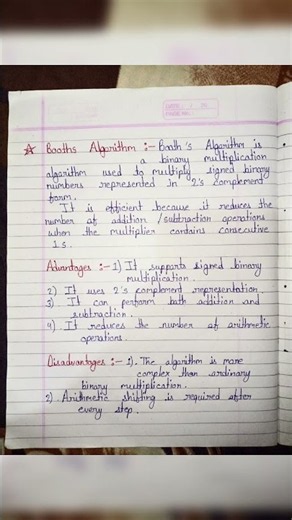 DATE
PAGE NO.
☆ Booths Algorithm :- Booth's Algorithm is
a binary multiplication
algorithm used to multiply signed binary
numbers represented in 2's complement
form.
It is efficient because it reduces the
number of addition / subtraction operations
when the multiplier contains consecutive
1s.
Advantages :- 1) It supports signed binary
multiplication.
2) It uses 2's complement representation.
3) It can perform both addition and
subtraction.
4). It reduces the number of arithmetic
operations.
Disadvantages :- 1). The algorithm is more
complex than ordinary
binary multiplication.
2) Arithmetic shifting is required after
every step.